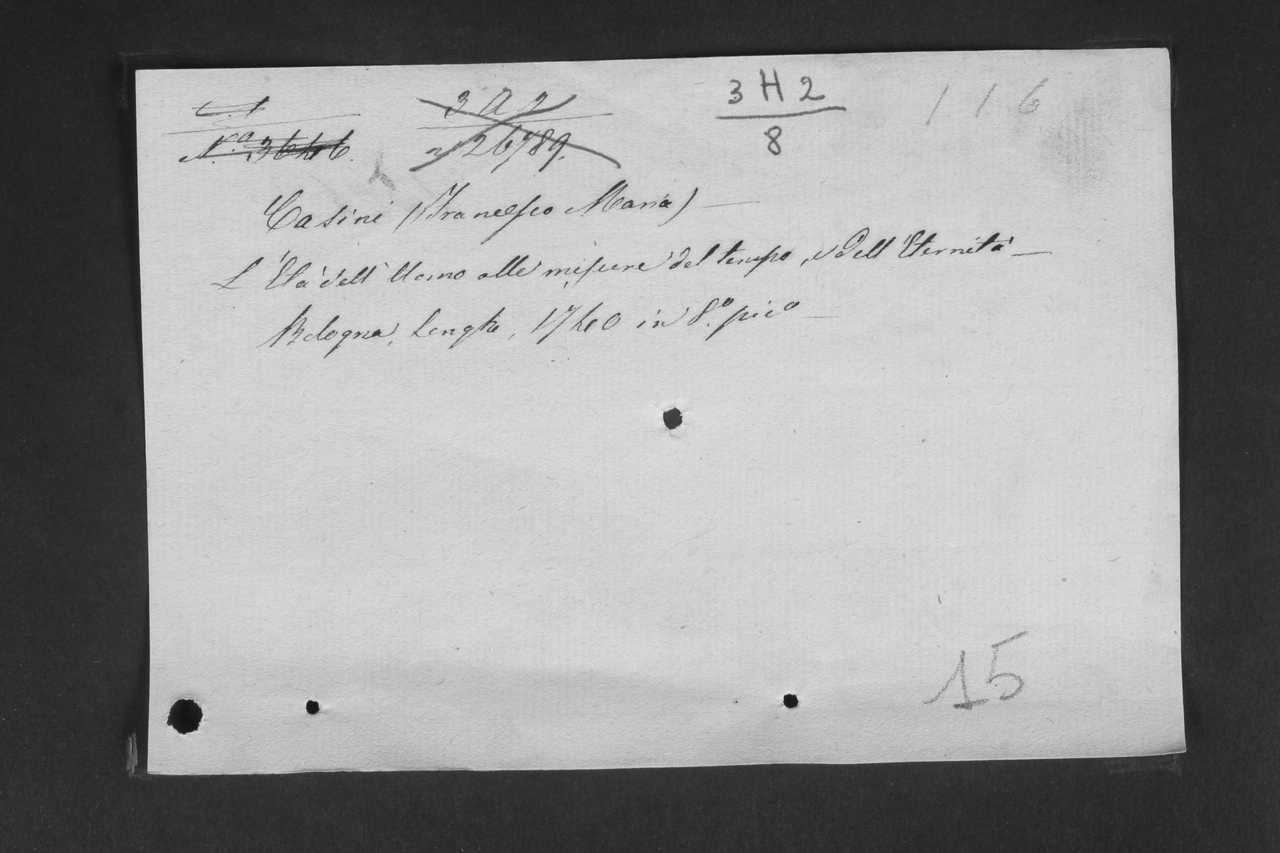 3 A 2 3 H 2 116
N.º 3646. nº 26789. 8
Casini (Francesco Maria) —
L'Età dell'Uomo alle misure del tempo, e dell'Eternità —
Bologna, Longhi, 1740 in 8.º picº —
15